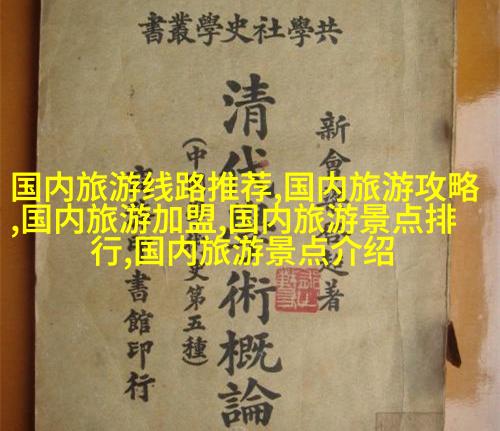 共學社史學叢書
新會
著
清代
術概論
(中
史第五種)
書館印行
国内旅游线路推荐,国内旅游攻略
,国内旅游加盟,国内旅游景点排
行,国内旅游景点介绍